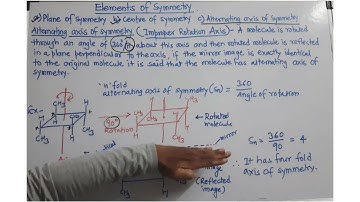 Elements of Symmetry
a) Plane of Symmetry b) Centre of Symmetry c) Alternating axis of Symmetry
Alternating axis of Symmetry (Improper Rotation Axis) - A molecule is rotated
through an angle of 360°/n about this axis and then rotated molecule is reflected
in a plane perpendicular to the axis, if the mirror image is exactly identical
to the original molecule it is said that the molecule has alternating axis of
symmetry.
"n" fold
alternating axis of symmetry (Sn) = 360/Angle of rotation
Ex-
CH3
H
90°
Rotation
H
CH3
← Rotated
molecule
mirror
Sn = 360/90 = 4
∴ It has four fold
axis of symmetry.
image
(Reflected
image)
CH3